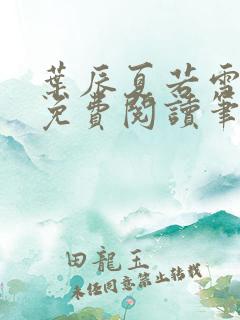 葉辰夏若雪
免費閱讀筆
田龍玉
未经同意禁止转载